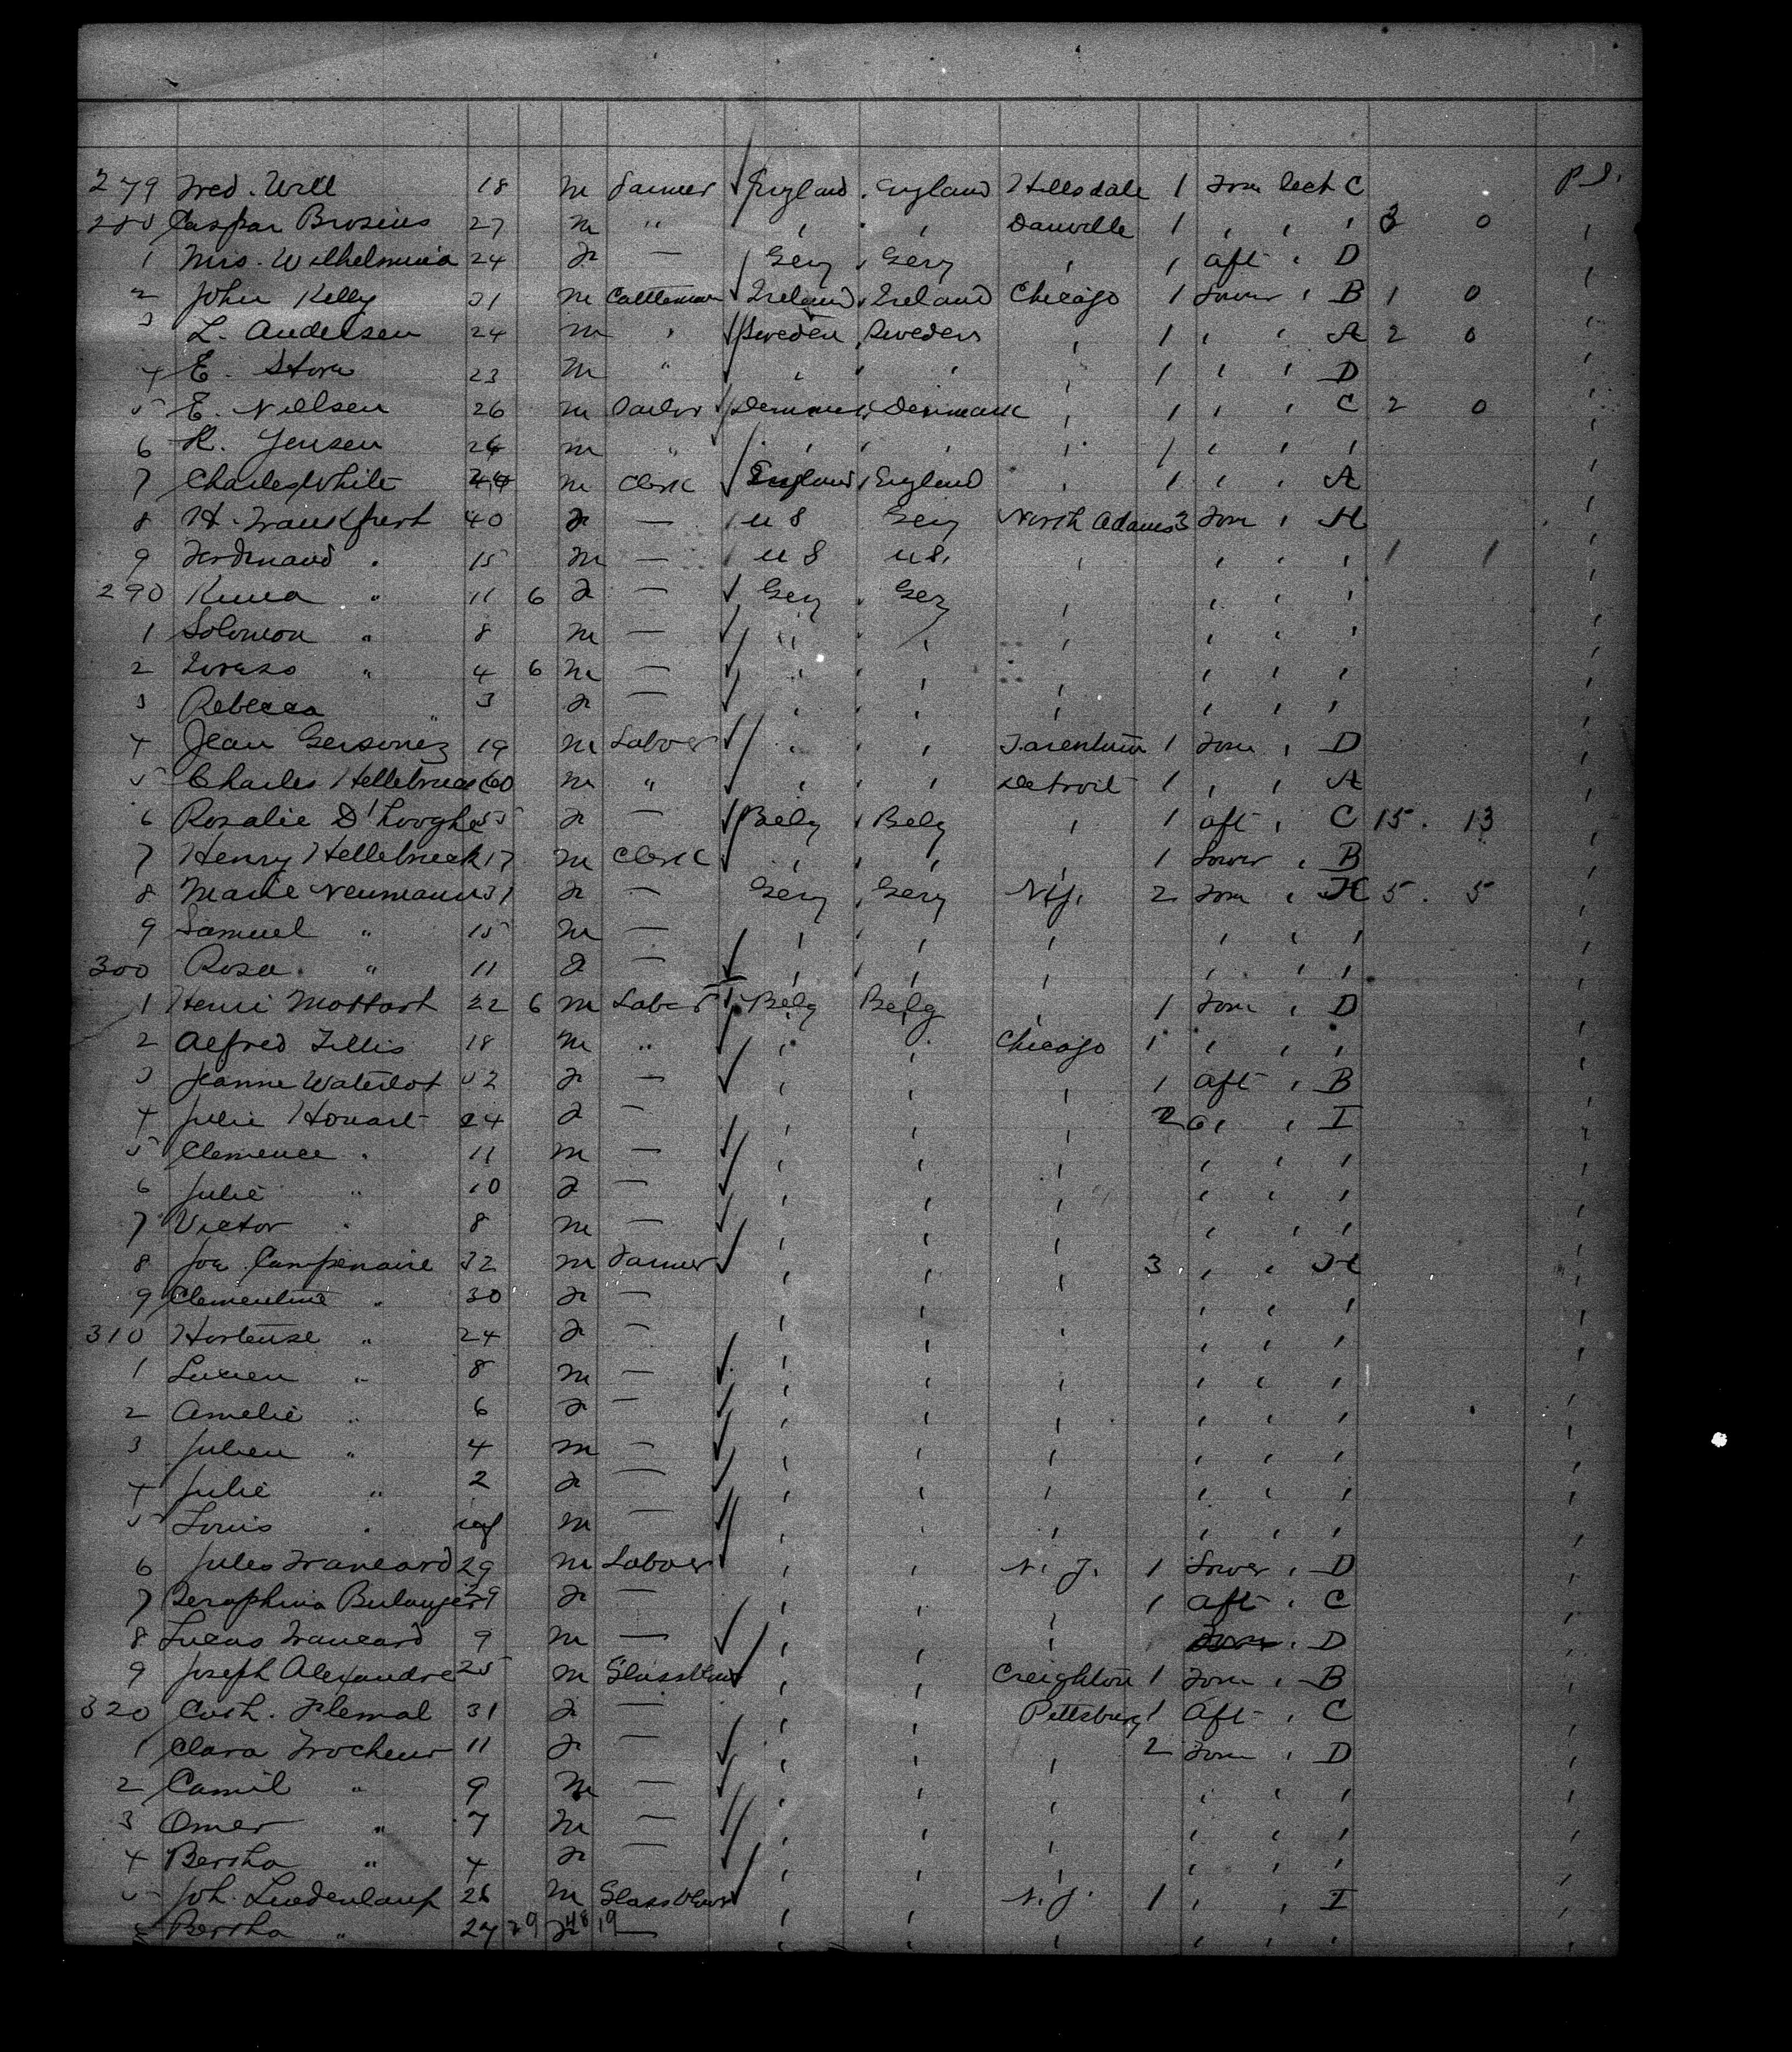 279 Fred. Will 18 m Farmer England England Hillsdale 1 Forw. Sect C P.S.
280 Caspar Brosius 27 m " , , Danville 1 , , , 3 0 ,
1 Mrs. Wilhelmina 24 f — Gery Gery , 1 Aft , D ,
2 John Kelly 31 m Cattleman Ireland Ireland Chicago 1 Lower , B 1 0 ,
3 L. Andersen 24 m , Sweden Sweden , 1 , , A 2 0 ,
4 E. Storm 23 m " , , , 1 , , D ,
5 E. Nielsen 26 m Sailor Denmark Denmark , 1 , , C 2 0 ,
6 K. Jensen 26 m " , , , 1 , , , ,
7 Charles White m Clerk England England , 1 , , A ,
8 H. Frankfurt 40 f — U S Gery North Adams 3 Forw , H ,
9 Ferdinand " 15 m — U S U S. , , , , 1 1 ,
290 " 11 6 f — Gery Gery , , , , ,
1 Solomon " 8 m — " , , , , , ,
2 " 4 6 m — , , , , , , ,
3 Rebecca " 3 f — , , , , , , ,
4 Jean 19 m Labor , , Tarentum 1 Forw , D ,
5 Charles Hellebruck 60 m " , , Detroit 1 , , A ,
6 Rosalie D'hooghe 55 f — Belg Belg , 1 Aft , C 15. 13 ,
7 Henry Hellebruck 17 m Clerk , , , 1 Lower , B ,
8 Marie Neumann 31 f — Gery Gery N.Y. 2 Forw , H 5. 5 ,
9 Samuel " 15 m — , , , , , , ,
300 Rosa " 11 f , , , , , , ,
1 Henri Mottart 22 6 m Labor Belg Belg , 1 Forw , D ,
2 Alfred Tillis 18 m " , , Chicago 1 , , , ,
3 Jeanne Waterlot 32 f — , , , 1 Aft , B ,
4 Julie Houart 24 f — , , , 2 , , I ,
5 Clemence " 11 m — , , , , , , ,
6 Julie " 10 f — , , , , , , ,
7 Victor " 8 m — , , , , , , ,
8 Jos. Campenaire 32 m Farmer , , , 3 , , H ,
9 Clementine " 30 f — , , , , , , ,
310 Hortense " 24 f — , , , , , , ,
1 Lucien " 8 m — , , , , , , ,
2 Amelie " 6 f — , , , , , , ,
3 Julien " 4 m — , , , , , , ,
4 Julie " 2 f — , , , , , , ,
5 Louis " inf m — , , , , , , ,
6 Jules Francard 29 m Labor , , N.Y. 1 Lower , D ,
7 Seraphina Bulanger 29 f — , , , 1 Aft , C ,
8 Lucas Francard 9 m — , , , , D ,
9 Joseph Alexandre 25 m Glassblower , , Creighton 1 Forw , B ,
320 Cath. Flemal 31 f — , , Pittsburg 1 Aft , C ,
1 Clara Trocheur 11 f — , , , 2 Forw , D ,
2 Camil " 9 m — , , , , , , ,
3 Omer " 7 m — , , , , , , ,
4 Bertha " 4 f — , , , , , , ,
5 Joh. 26 m Glassblower , , N.Y. 1 , , I ,
6 Bertha " 27 29 f 48 19 — , , , , , , ,